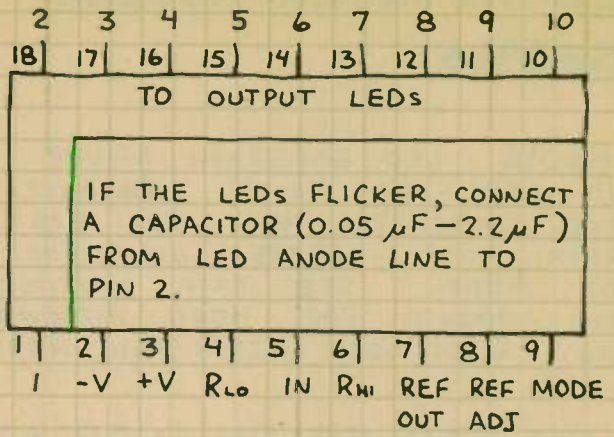 2 3 4 5 6 7 8 9 10
18 17 16 15 14 13 12 11 10
TO OUTPUT LEDS
IF THE LEDS FLICKER, CONNECT
A CAPACITOR (0.05 μF-2.2μF)
FROM LED ANODE LINE TO
PIN 2.
1 2 3 4 5 6 7 8 9
1 -V +V RLO IN RHI REF REF MODE
OUT ADJ